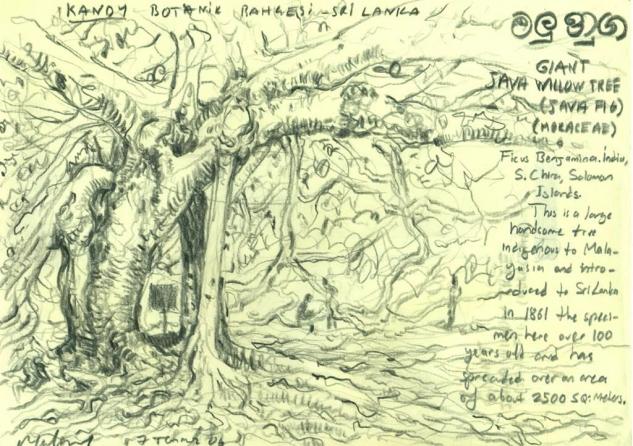 KANDY BOTANİK BAHÇESİ - SRİ LANKA
මලු නුග
GIANT
JAVA WILLOW TREE
(JAVA FIG)
(MORACEAE)
Ficus Benjamina. India,
S. China, Solomon
Islands.
This is a large
handsome tree
indigenous to Mala-
yasia and intro-
duced to Sri Lanka
in 1861 the speci-
men here over 100
years old and has
spreaded over an area
of about 2500 SQ: Meters.